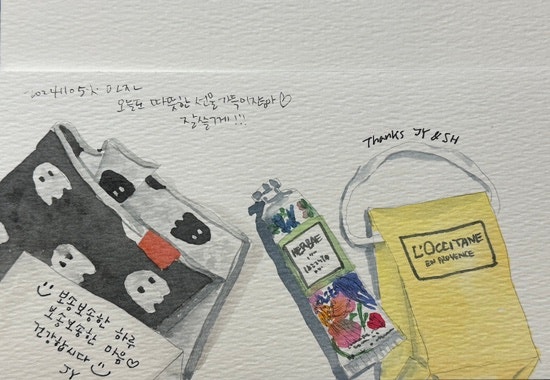 2024.11.05.
오늘도 따뜻한 선물 가득이잖아
잘쓸게!!!
Thanks JY & SH
HERBAE
L'OCCITANE
EN PROVENCE
뽀송뽀송한 하루
뽀송뽀송한 마음
건강합시다
JY